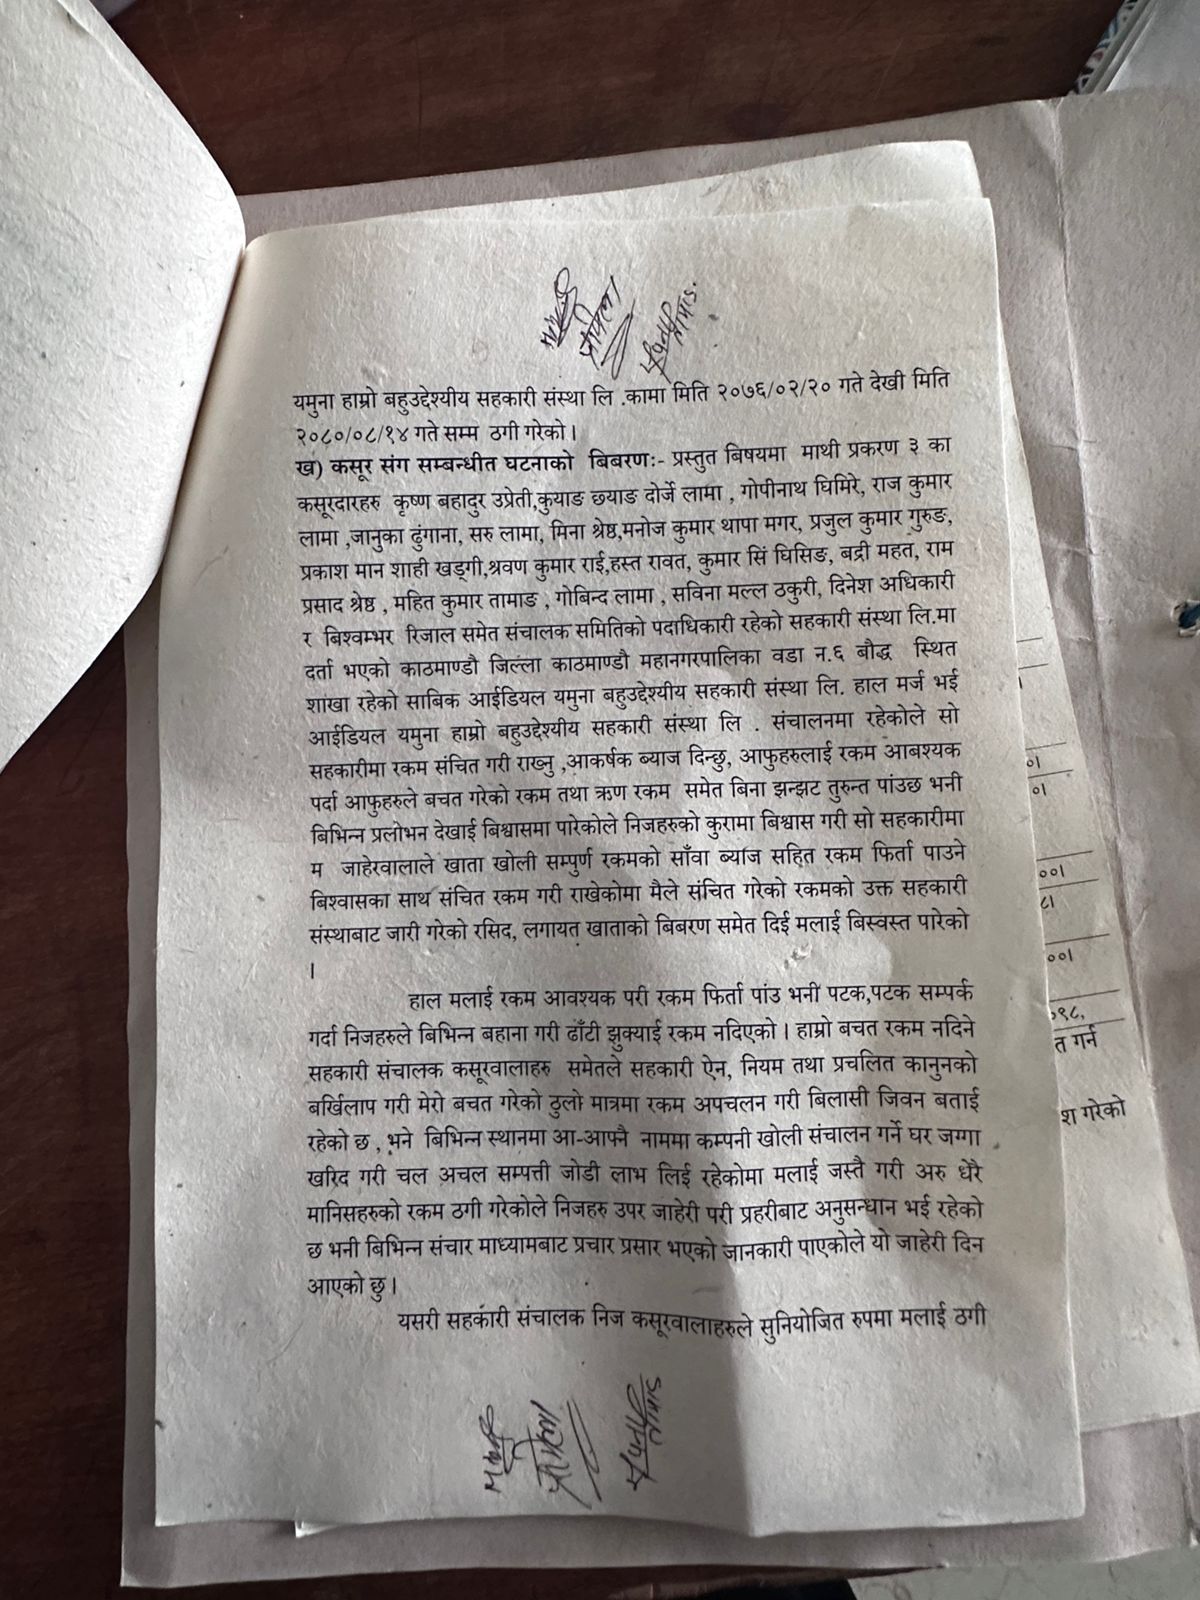 प्रमिला
यमुना हाम्रो बहुउद्देश्यीय सहकारी संस्था लि .कामा मिति २०७६/०२/२० गते देखी मिति
२०८०/०८/१४ गते सम्म ठगी गरेको ।
ख) कसूर संग सम्बन्धीत घटनाको बिबरणः- प्रस्तुत बिषयमा माथी प्रकरण ३ का
कसूरदारहरु कृष्ण बहादुर उप्रेती,कुयाङ छ्याङ दोर्जे लामा , गोपीनाथ घिमिरे, राज कुमार
लामा ,जानुका ढुंगाना, सरु लामा, मिना श्रेष्ठ,मनोज कुमार थापा मगर, प्रजुल कुमार गुरुङ,
प्रकाश मान शाही खड्गी,श्रवण कुमार राई,हस्त रावत, कुमार सिं घिसिङ, बद्री महत, राम
प्रसाद श्रेष्ठ , महित कुमार तामाङ , गोबिन्द लामा , सविना मल्ल ठकुरी, दिनेश अधिकारी
र बिश्वम्भर रिजाल समेत संचालक समितिको पदाधिकारी रहेको सहकारी संस्था लि.मा
दर्ता भएको काठमाण्डौ जिल्ला काठमाण्डौ महानगरपालिका वडा न.६ बौद्ध स्थित
शाखा रहेको साबिक आईडियल यमुना बहुउद्देश्यीय सहकारी संस्था लि. हाल मर्ज भई
आईडियल यमुना हाम्रो बहुउद्देश्यीय सहकारी संस्था लि . संचालनमा रहेकोले सो
सहकारीमा रकम संचित गरी राख्नु ,आकर्षक ब्याज दिन्छु, आफुहरुलाई रकम आबश्यक
पर्दा आफुहरुले बचत गरेको रकम तथा ऋण रकम समेत बिना झन्झट तुरुन्त पांउछ भनी
बिभिन्न प्रलोभन देखाई बिश्वासमा पारेकोले निजहरुको कुरामा बिश्वास गरी सो सहकारीमा
म जाहेरवालाले खाता खोली सम्पुर्ण रकमको साँवा ब्याज सहित रकम फिर्ता पाउने
बिश्वासका साथ संचित रकम गरी राखेकोमा मैले संचित गरेको रकमको उक्त सहकारी
संस्थाबाट जारी गरेको रसिद, लगायत खाताको बिबरण समेत दिई मलाई बिस्वस्त पारेको
।
हाल मलाई रकम आवश्यक परी रकम फिर्ता पांउ भनी पटक,पटक सम्पर्क
गर्दा निजहरुले बिभिन्न बहाना गरी ढाँटी झुक्याई रकम नदिएको । हाम्रो बचत रकम नदिने
सहकारी संचालक कसूरवालाहरु समेतले सहकारी ऐन, नियम तथा प्रचलित कानुनको
बर्खिलाप गरी मेरो बचत गरेको ठुलो मात्रमा रकम अपचलन गरी बिलासी जिवन बताई
रहेको छ , भने बिभिन्न स्थानमा आ-आफ्नै नाममा कम्पनी खोली संचालन गर्ने घर जग्गा
खरिद गरी चल अचल सम्पत्ती जोडी लाभ लिई रहेकोमा मलाई जस्तै गरी अरु धेरै
मानिसहरुको रकम ठगी गरेकोले निजहरु उपर जाहेरी परी प्रहरीबाट अनुसन्धान भई रहेको
छ भनी बिभिन्न संचार माध्यामबाट प्रचार प्रसार भएको जानकारी पाएकोले यो जाहेरी दिन
आएको छु ।
यसरी सहकारी संचालक निज कसूरवालाहरुले सुनियोजित रुपमा मलाई ठगी
प्रमिला
त गर्न
श गरेको